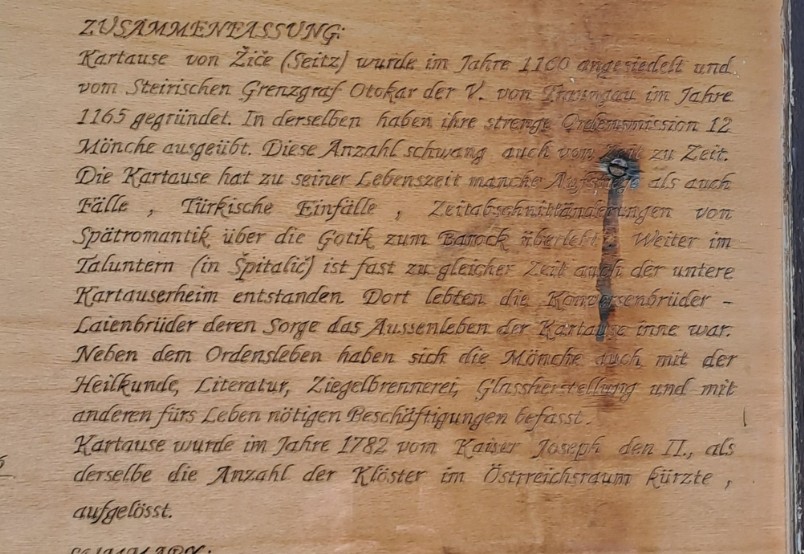 ZUSAMMENFASSUNG:
Kartause von Žiče (Seitz) wurde im Jahre 1160 angesiedelt und
vom Steirischen Grenzgraf Otokar der V. von im Jahre
1165 gegründet. In derselben haben ihre strenge Ordensmission 12
Mönche ausgeübt. Diese Anzahl schwang auch von Zeit zu Zeit.
Die Kartause hat zu seiner Lebenszeit manche Aufstiege als auch
Fälle , Türkische Einfälle , Zeitabschnittänderungen von
Spätromantik über die Gotik zum Barock überlebt. Weiter im
Taluntern (in Špitalič) ist fast zu gleicher Zeit auch der untere
Kartauserheim entstanden. Dort lebten die Konversenbrüder -
Laienbrüder deren Sorge das Aussenleben der Kartause inne war.
Neben dem Ordensleben haben sich die Mönche auch mit der
Heilkunde, Literatur, Ziegelbrennerei, Glassherstellung und mit
anderen fürs Leben nötigen Beschäftigungen befasst.
Kartause wurde im Jahre 1782 vom Kaiser Joseph den II., als
derselbe die Anzahl der Klöster im Östrreichsraum kürzte ,
aufgelösst.
SUMMARY: